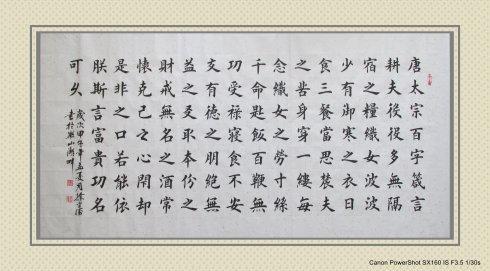 唐太宗百字箴言
耕夫役役多無隔
宿之糧織女波波
少有御寒之衣日
食三餐當思農夫
之苦身穿一縷每
念織女之勞寸絲
千命匙飯百鞭無
功受祿寢食不安
交有德之朋絕無
益之友取本份之
財戒無名之酒常
懷克己之心閉却
是非之口若能依
朕斯言富貴功名
可久
歲次甲午年孟夏月徐
書於山湖畔
Canon PowerShot SX160 IS F3.5 1/30s